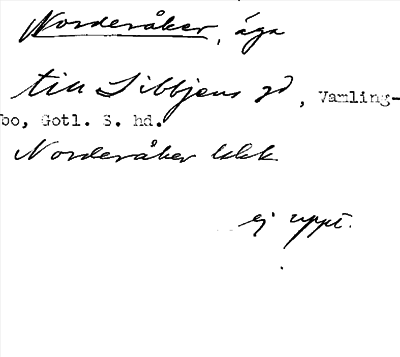 Norderåker, äga
till Sibbjens gd, Vamling-
bo, Gotl. S. hd.
Norderåker ekk
ej uppt.